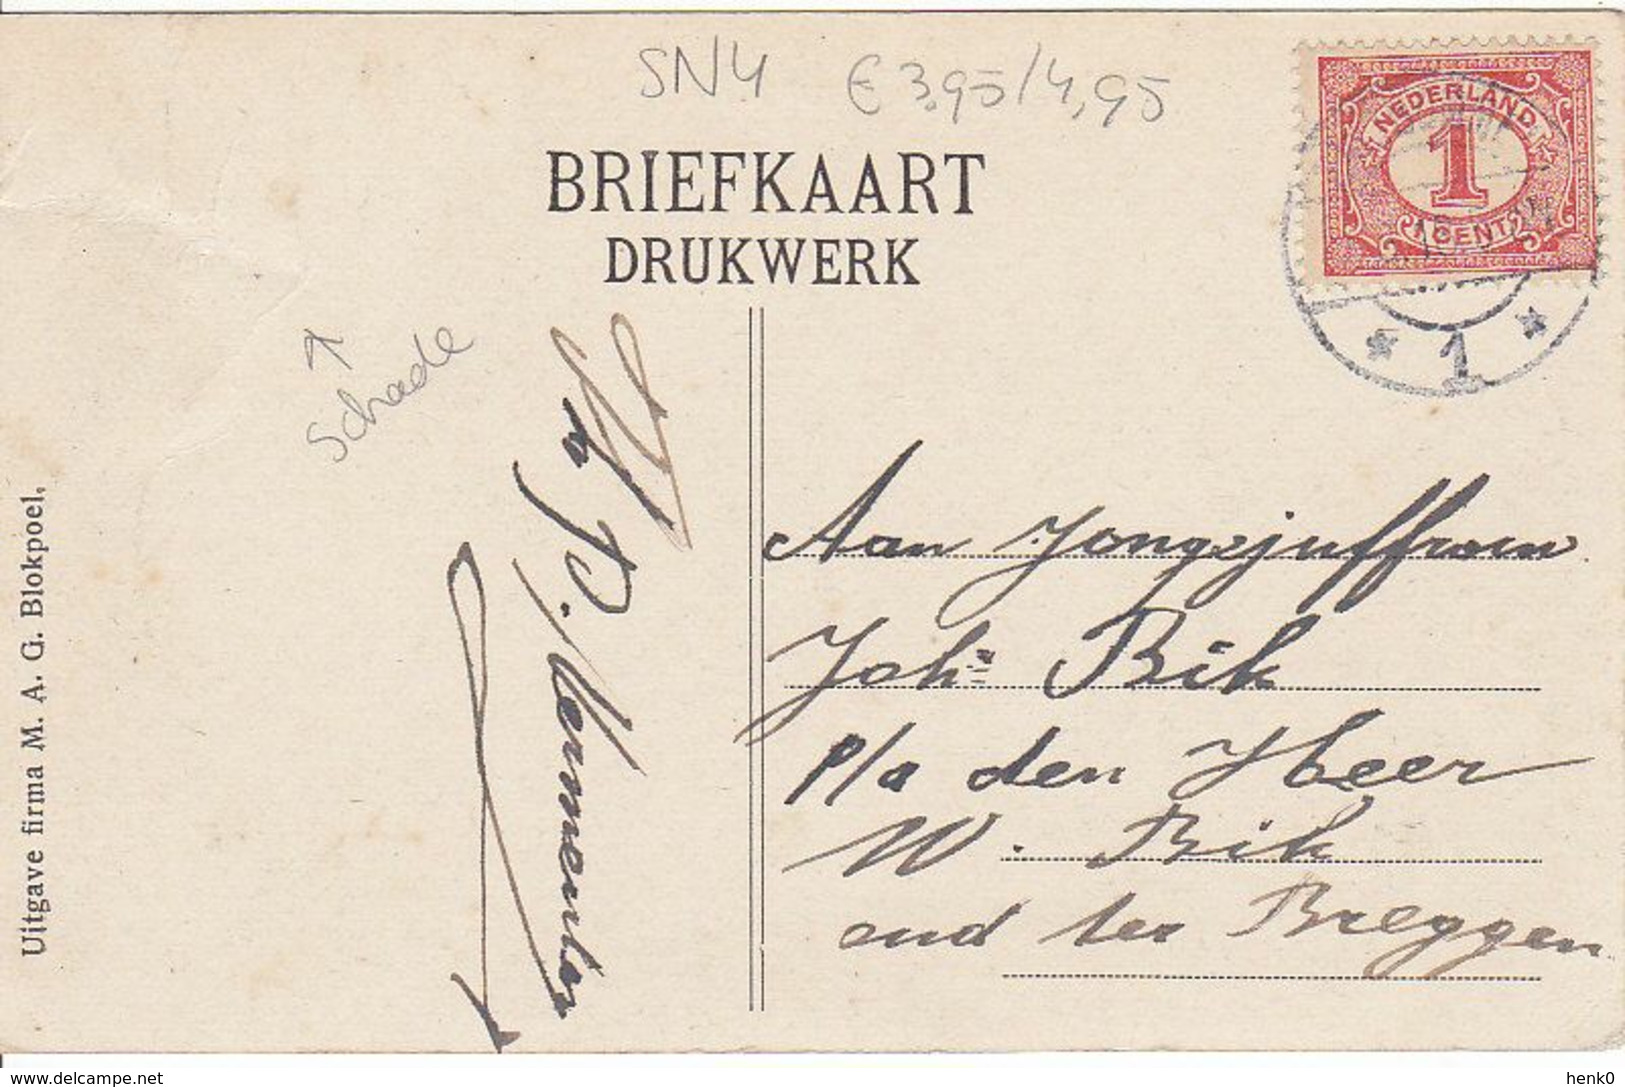 SN4 € 3,95/4,95
NEDERLAND
1
1 CENT
BRIEFKAART
DRUKWERK
1
schade
Uitgave firma M. A. G. Blokpoel,
Aan Jongejuffrouw
Joh: Rik
P/a den Heer
W. Rik
ter Breggen
www.delcampe.net
henk0